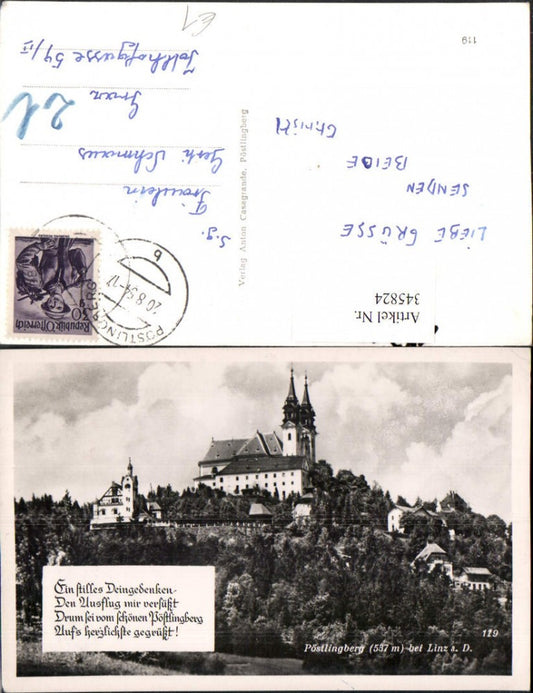 119
LIEBE GRÜSSE
SENDEN
BEIDE
Christl
Verlag Anton Casagrande, Pöstlingberg
S.g.
Fräulein
Gerti Schmaus
Graz
54/II
PÖSTLINGBERG
20.8.54-17
b
30 g
Republik Österreich
Artikel Nr.
345824
Ein stilles Deingedenken
Den Ausflug mir versüßt
Drum sei vom schönen Pöstlingberg
Aufs herzlichste gegrüßt!
119
Pöstlingberg (537 m) bei Linz a. D.